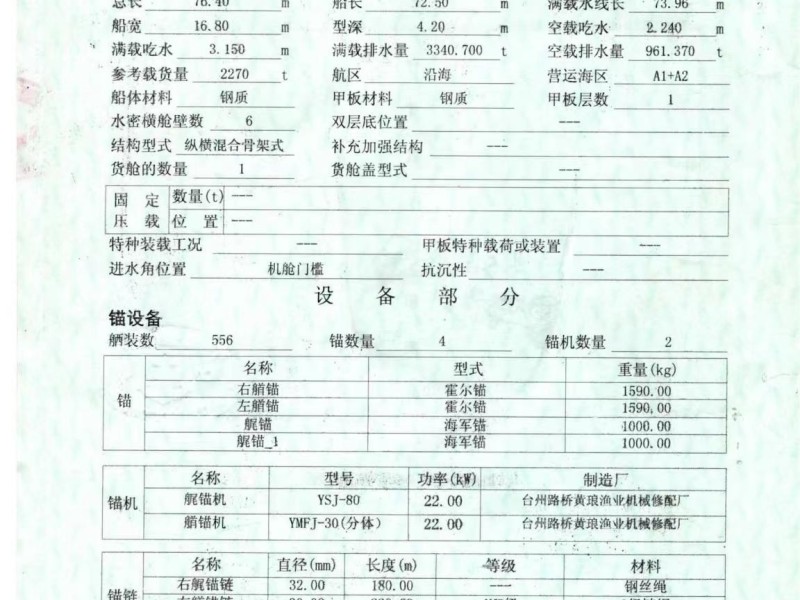 总长 76.40 m 船长 72.50 m 满载水线长 73.96 m
船宽 16.80 m 型深 4.20 m 空载吃水 2.240 m
满载吃水 3.150 m 满载排水量 3340.700 t 空载排水量 961.370 t
参考载货量 2270 t 航区 沿海 营运海区 A1+A2
船体材料 钢质 甲板材料 钢质 甲板层数 1
水密横舱壁数 6 双层底位置 ---
结构型式 纵横混合骨架式 补充加强结构 ---
货舱的数量 1 货舱盖型式 ---
固定 数量(t) ---
压载 位置 ---
特种装载工况 --- 甲板特种载荷或装置 ---
进水角位置 机舱门槛 抗沉性 ---
设备部分
锚设备
舾装数 556 锚数量 4 锚机数量 2
名称 型式 重量(kg)
右艏锚 霍尔锚 1590.00
锚 左艏锚 霍尔锚 1590.00
艉锚 海军锚 1000.00
艉锚_1 海军锚 1000.00
名称 型号 功率(kW) 制造厂
锚机 艉锚机 YSJ-80 22.00 台州路桥黄琅渔业机械修配厂
艏锚机 YMFJ-30(分体) 22.00 台州路桥黄琅渔业机械修配厂
名称 直径(mm) 长度(m) 等级 材料
锚链 右艉锚链 32.00 180.00 --- 钢丝绳